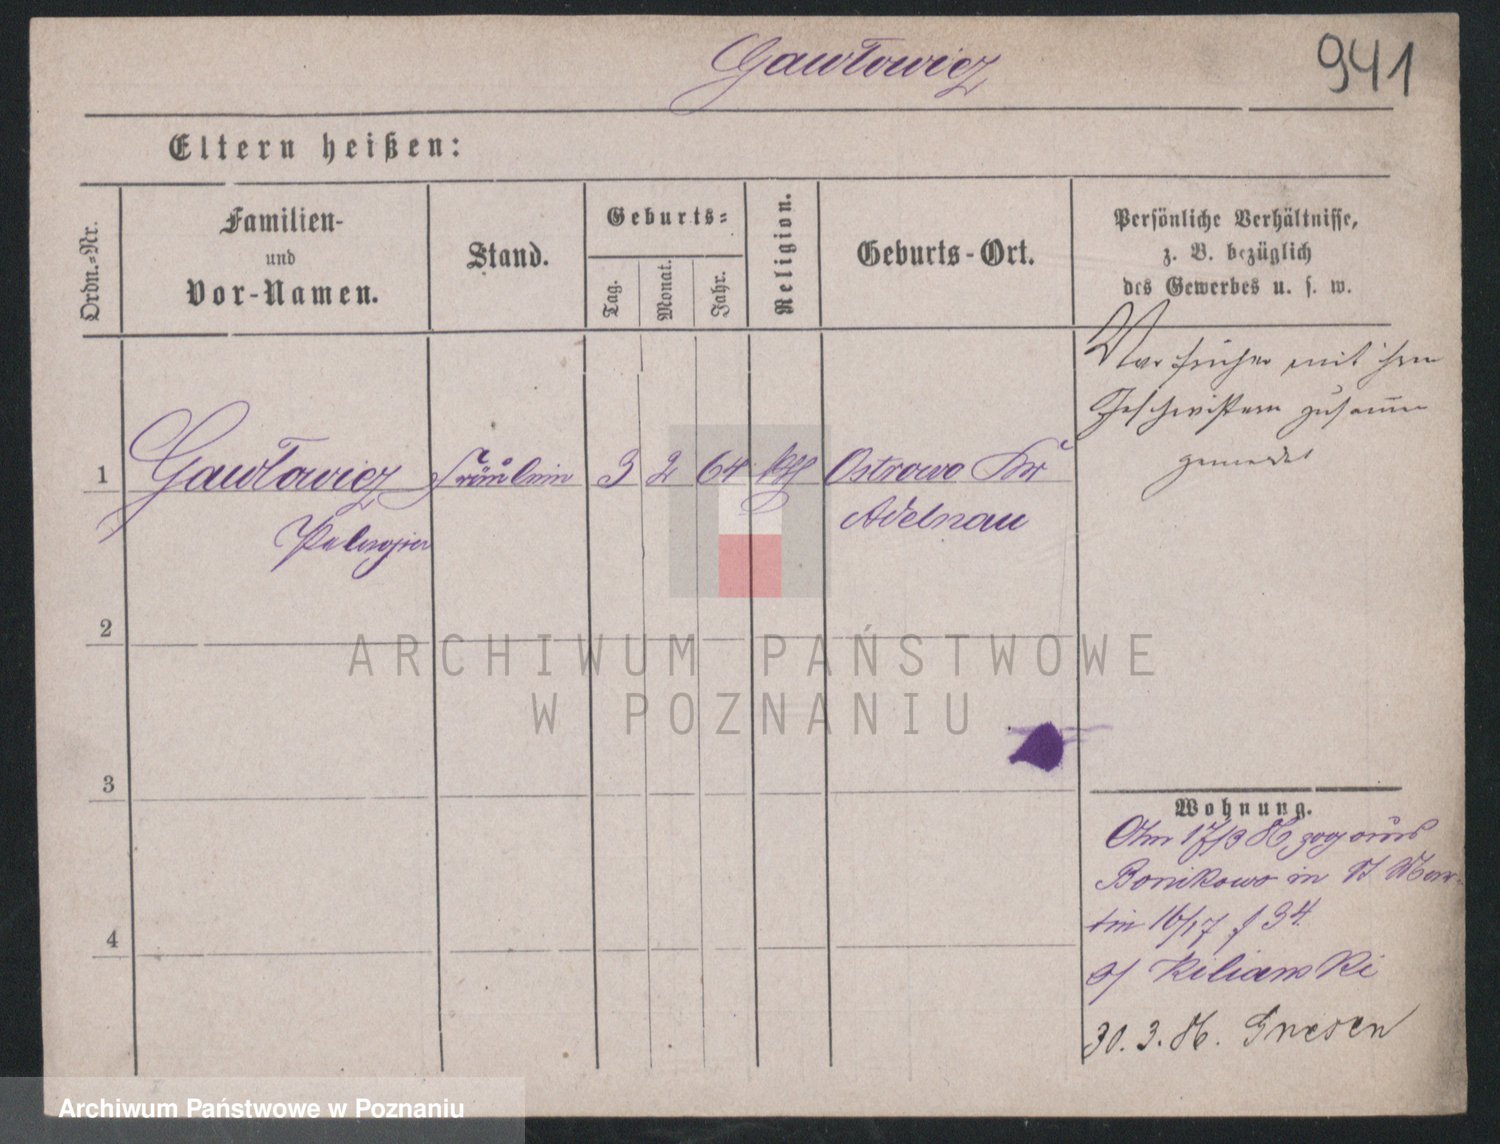 Gawłowicz
941
Eltern heißen:
Ordn.-Nr.
Familien-
und
Vor-Namen.
Stand.
Geburts-
Tag.
Monat.
Jahr.
Religion.
Geburts-Ort.
Persönliche Verhältnisse,
z. B. bezüglich
des Gewerbes u. s. w.
War früher mit ihren
Geschwistern zusammen
gemeldet
1
Gawłowicz Fräulein 3 2 64 kth Ostrowo Kr
Pelagia
Adelnau
2
3
4
Wohnung.
Am 17/3 86 zog aus
Bonikowo in St Mar-
tin 16/17 f 34.
b/ Kilianski
30. 3. 86. Gnesen
ARCHIWUM PAŃSTWOWE
W POZNANIU
Archiwum Państwowe w Poznaniu